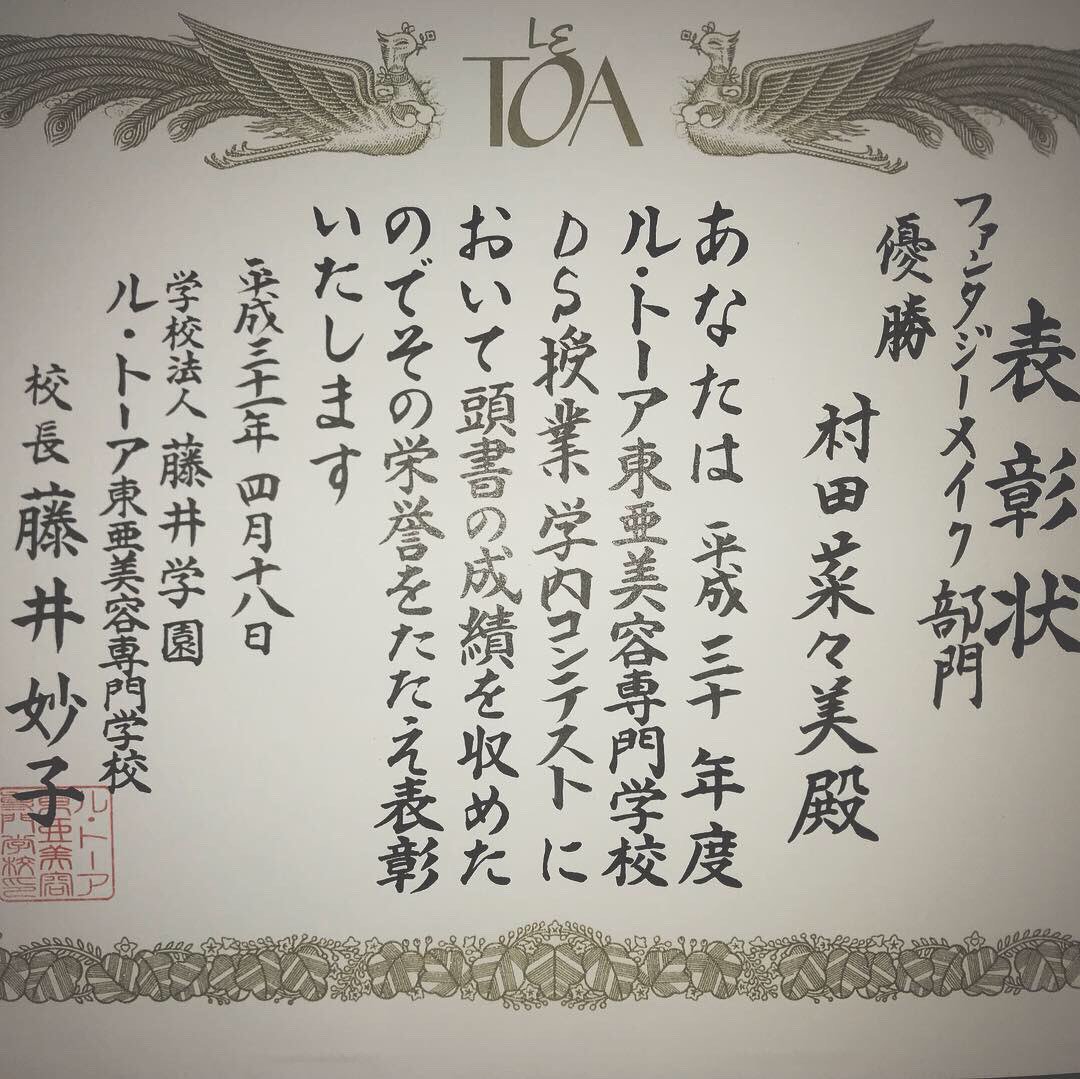 LE
TOA
表彰状
ファンタジーメイク部門
優勝
村田菜々美殿
あなたは 平成三十年度
ル・トーア東亜美容専門学校
DS授業 学内コンテストに
おいて頭書の成績を収めた
のでその栄誉をたたえ表彰
いたします
平成三十一年 四月十八日
学校法人 藤井学園
ル・トーア東亜美容専門学校
校長 藤井妙子
ル・トーア
東亜美容
専門学校印